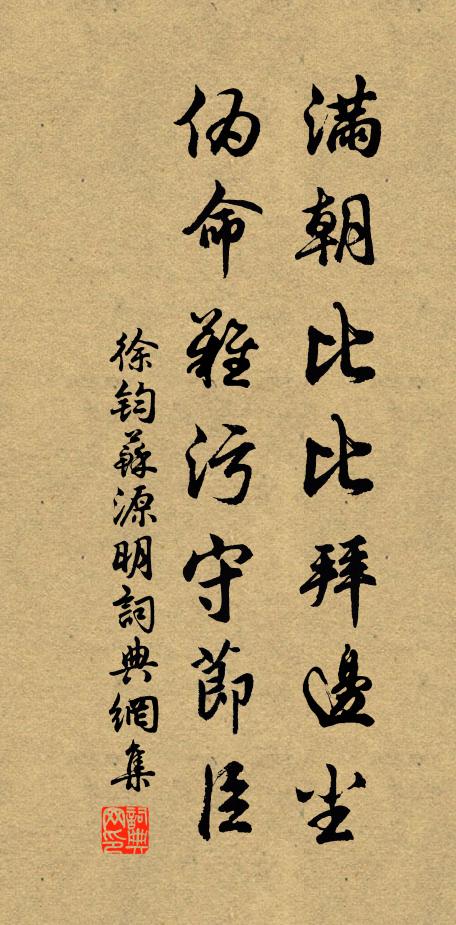 滿朝比比拜邊尘
伪命難污守節臣
徐鈞蘇源明詞典網集
詞典網印